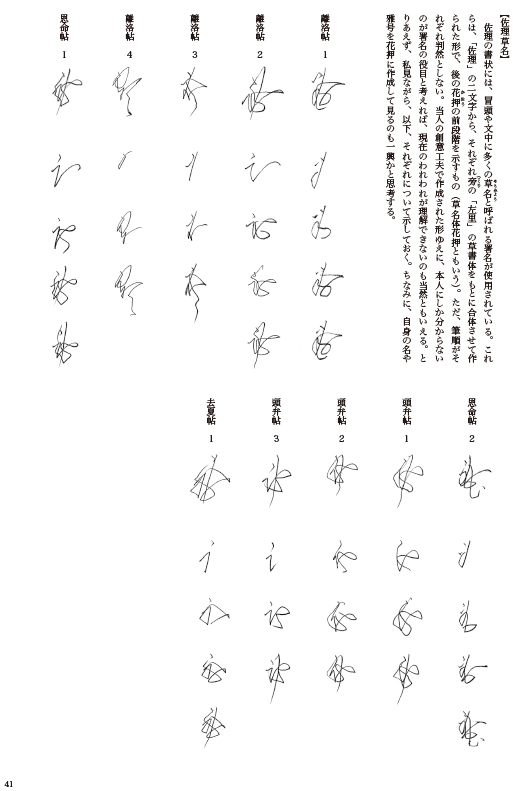 【佐理草名】
佐理の書状には、冒頭や文中に多くの草名と呼ばれる署名が使用されている。これ
らは、「佐理」の二文字から、それぞれ旁の「左里」の草書体をもとに合体させて作
られた形で、後の花押の前段階を示すもの（草名体花押ともいう）。ただ、筆順がそ
れぞれ判然としない。当人の創意工夫で作成された形ゆえに、本人にしか分からない
のが署名の役目と考えれば、現在のわれわれが理解できないのも当然ともいえる。と
りあえず、私見ながら、以下、それぞれについて示しておく。ちなみに、自身の名や
雅号を花押に作成して見るのも一興かと思考する。
離洛帖 1
離洛帖 2
離洛帖 3
離洛帖 4
恩命帖 1
恩命帖 2
頭弁帖 1
頭弁帖 2
頭弁帖 3
去夏帖 1
41